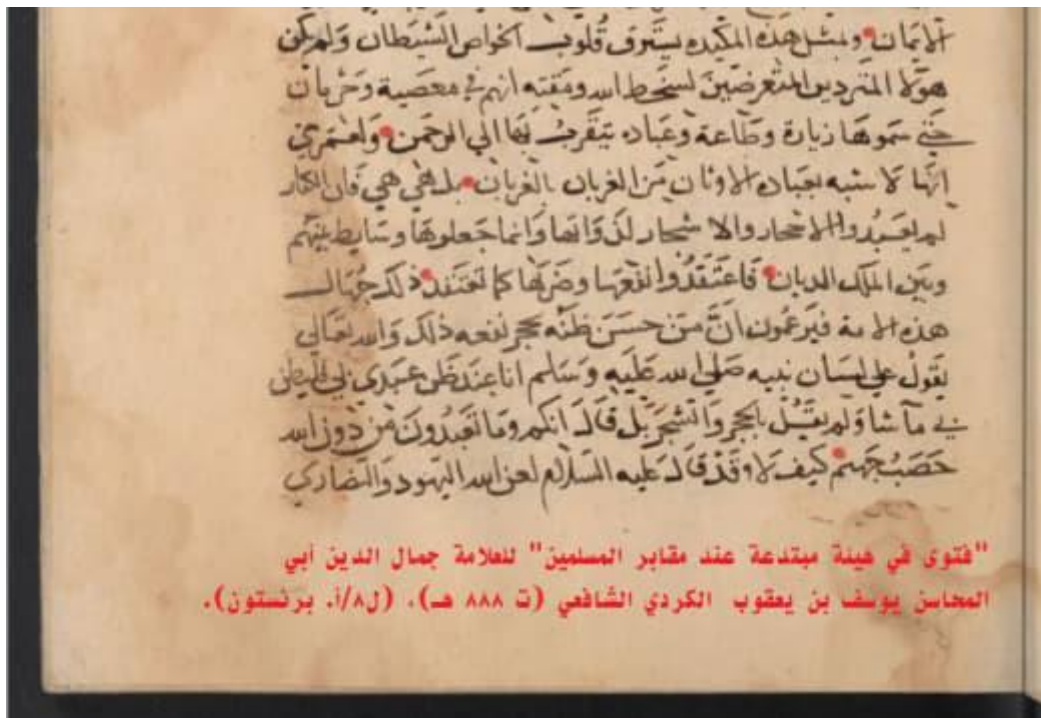 الايمان ولمثل هذه المكيده يسترق قلوب الخواص الشيطان ولم يكن
هولا المتمردين المتعرضين لسخط الله ومقته انهم في معصية وحرمان
حتي سموها زيارة وطاعة وعباده يتقرب بها الي الرحمن ولعمري
انها لاشبه بعباده الاوثان من الغربان بالغربان بل هي هي فان الكفار
لم يعبدوا الاحجار والاشجار لذواتها وانما جعلوها وسايط بينهم
وبين الملك الديان فاعتقدوا نفعها وضرها كما تعتقد ذلك جهال
هذه الامة فيزعمون ان من حسن ظنه بحجر لنفعه ذلك والله تعالي
يقول علي لسان نبيه صلي الله عليه وسلم انا عند ظن عبدي بي فليظن
بي ما شا ولم يقل بالحجر والشجر بل قال انكم وما تعبدون من دون الله
حصب جهنم كيف لا وقد قال عليه السلام لعن الله اليهود والنصاري
"فتوى في هيئة مبتدعة عند مقابر المسلمين" للعلامة جمال الدين أبي
المحاسن يوسف بن يعقوب الكردي الشافعي (ت ٨٨٨ هـ). (ل٨/أ. برنستون).